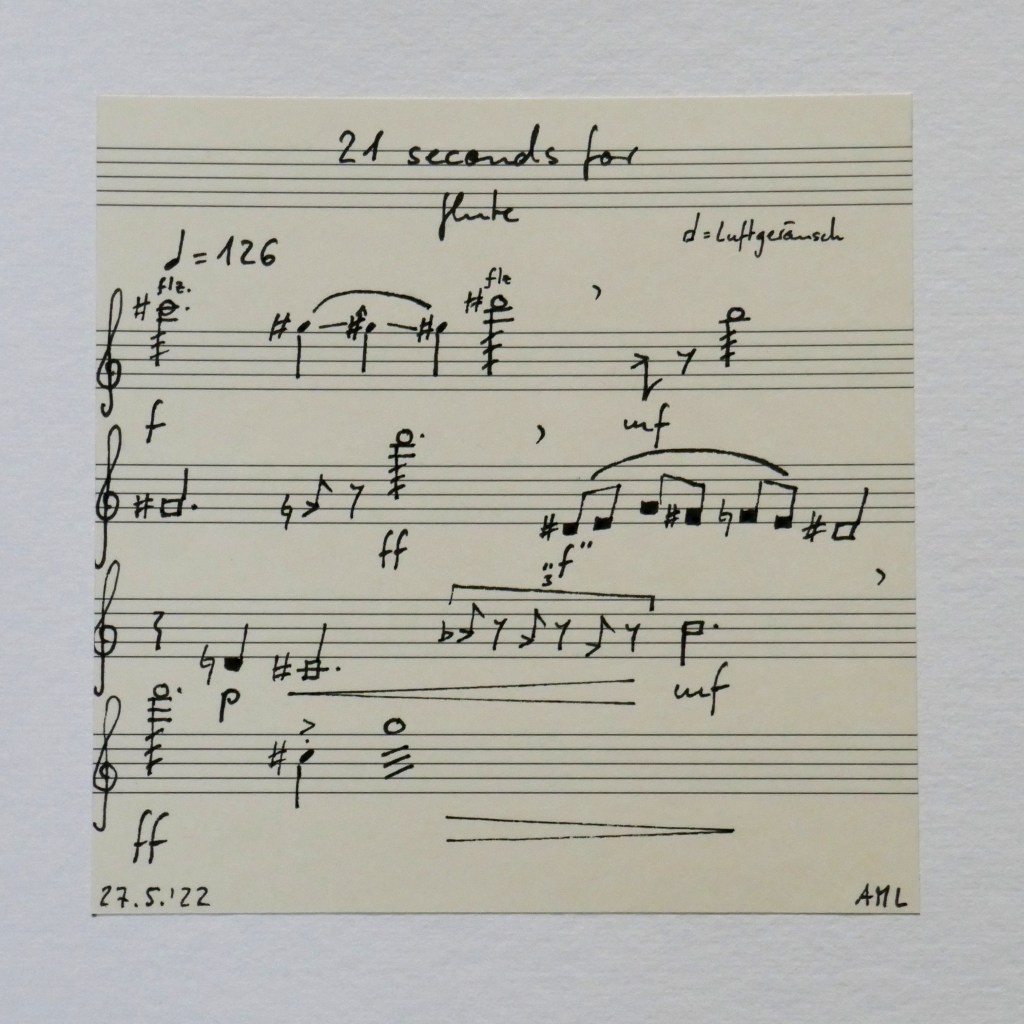 21 seconds for
flute
= 126
= Luftgeräusch
flz.
flz
f
mf
ff
"f"
"3"
p
mf
ff
27.5.'22
AML